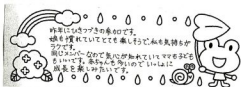 昨年にひきつづきの参加です。
娘も慣れていてとても楽しそうで、私も気持ちが
ラクです。
同じメンバーなので気心が知れていてママも子ども
もいいです。赤ちゃんも多いのでいっしょに
成長を楽しみたいです。